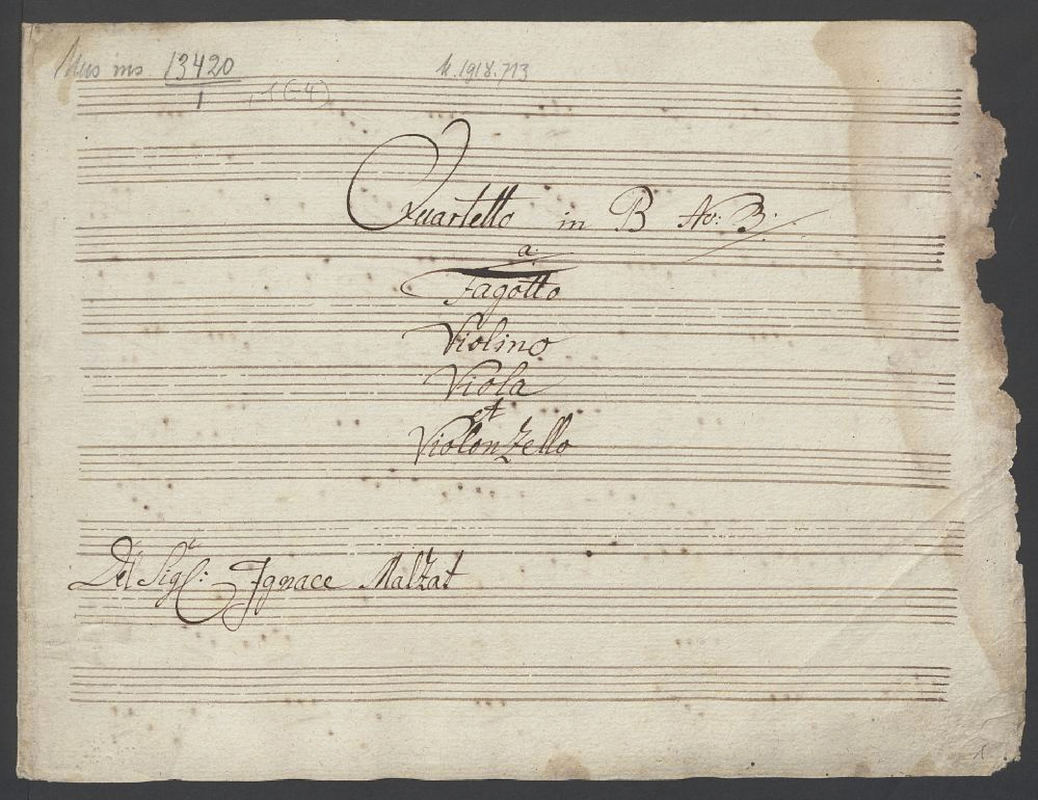 Mus ms 13420
1 , 1(-4)
M.1918.713
Quartetto in B No: 3:
a:
Fagotto
Violino
Viola
et
Violonzello
Del Sigr: Ignace Malzat
1